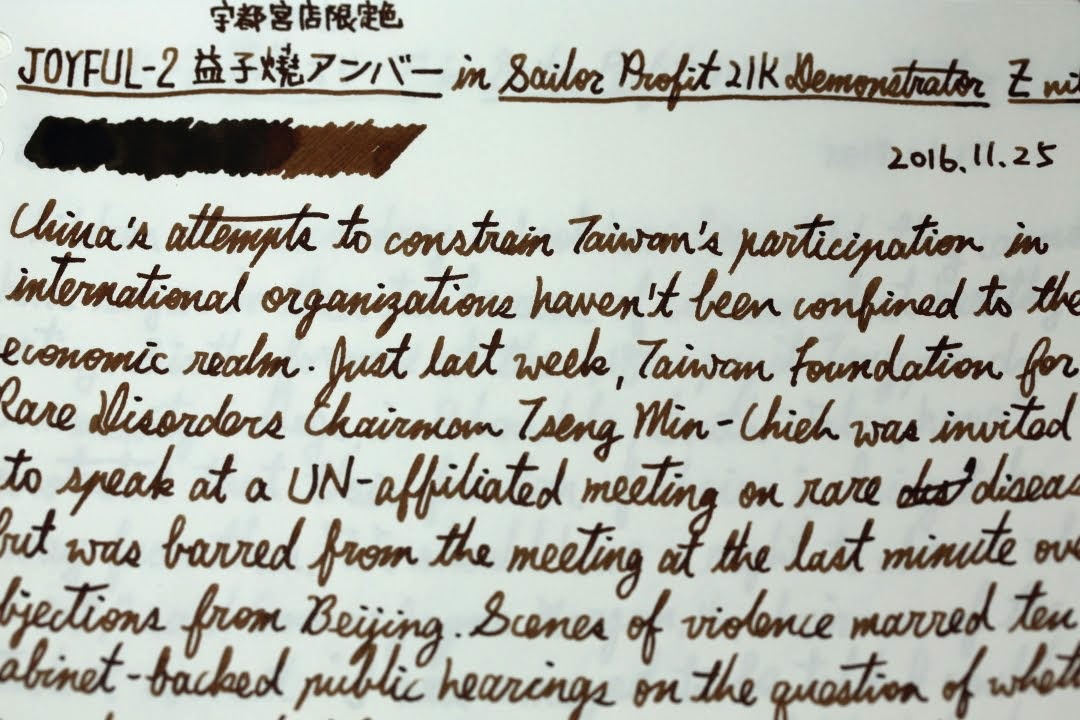 宇都宮店限定色
JOYFUL-2 益子燒アンバー in Sailor Profit 21K Demonstrator Z
2016.11.25
China's attempts to constrain Taiwan's participation in
international organizations haven't been confined to the
economic realm. Just last week, Taiwan Foundation for
Rare Disorders Chairman Tseng Min-Chieh was invited
to speak at a UN-affiliated meeting on rare
but was barred from the meeting at the last minute
from Beijing. Scenes of violence marred
public hearings on the question of